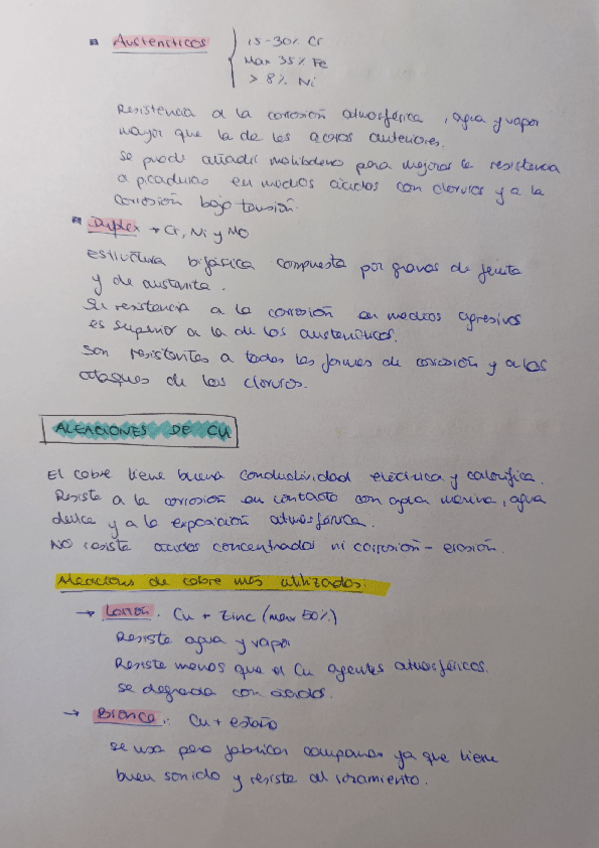 Austeníticos { 15-30% Cr
Max 35% Fe
> 8% Ni
Resistencia a la corrosión atmosférica, agua y vapor
mayor que la de los aceros anteriores.
Se puede añadir molibdeno para mejorar la resistencia
a picaduras en medios ácidos con cloruros y a la
corrosión bajo tensión.
Duplex → Cr, Ni y Mo
Estructura bifásica compuesta por granos de ferrita
y de austenita.
Su resistencia a la corrosión en medios agresivos
es superior a la de los austeníticos.
Son resistentes a todas las formas de corrosión y a los
ataques de los cloruros.
ALEACIONES DE CU
El cobre tiene buena conductividad eléctrica y calorífica.
Resiste a la corrosión en contacto con agua marina, agua
dulce y a la exposición atmosférica.
NO resiste ácidos concentrados ni corrosión-erosión.
Aleaciones de cobre más utilizados:
→ Latón. Cu + Zinc (max 50%)
Resiste agua y vapor
Resiste menos que el Cu agentes atmosféricos.
Se degrada con ácidos.
→ Bronce: Cu + estaño
Se usa para fabricar campanas ya que tiene
buen sonido y resiste al rozamiento.